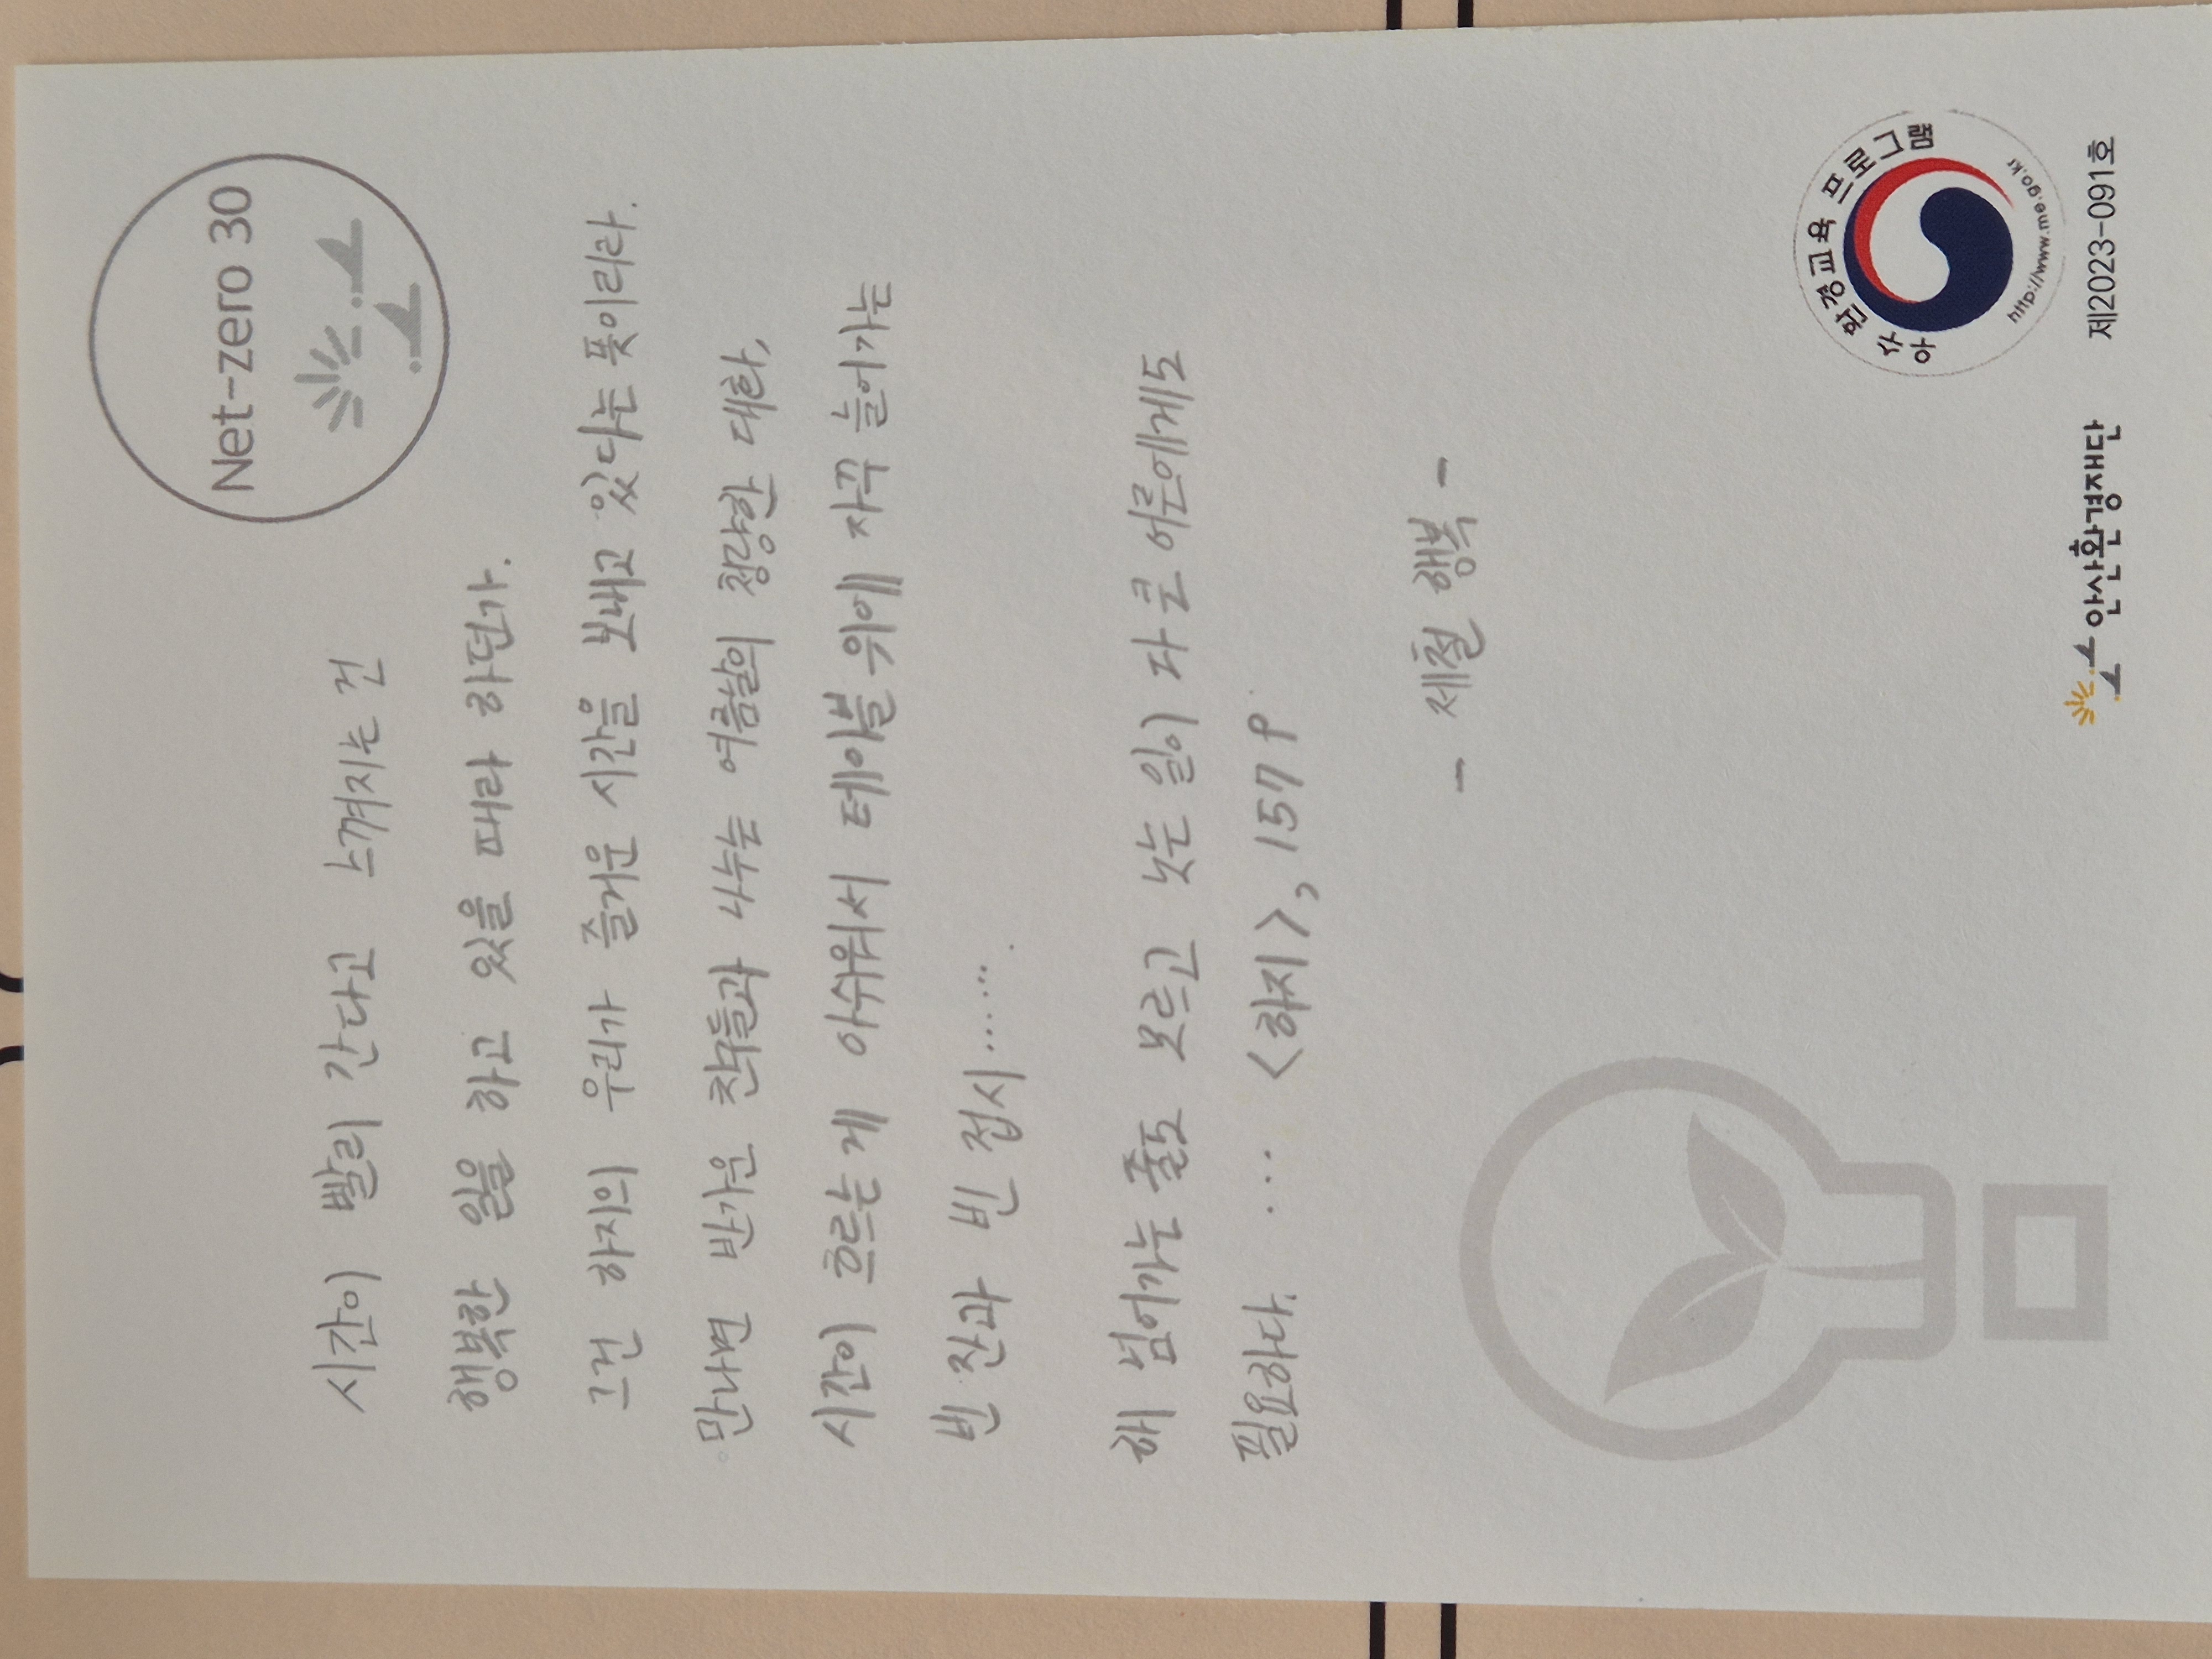 Net-zero 30
시간이 빨리 간다고 느껴지는 건
행복한 일을 하고 있을 때라 하던가.
그건 하지의 우리가 즐거운 시간을 보내고 있다는 뜻이리라.
만나면 반가운 친구들과 나누는 여름날의 청량한 대화,
시간이 흐르는 게 아쉬워서 테이블 위에 자꾸 늘어가는
빈 잔과 빈 접시.......
해 넘어가는 줄도 모르고 낫는 일이 다 큰 어른에게도
필요하다. ... <하지>, 157 p
- 제철 행복 -
우수 환경교육 프로그램
http://www.me.go.kr
안산환경재단 제2023-091호